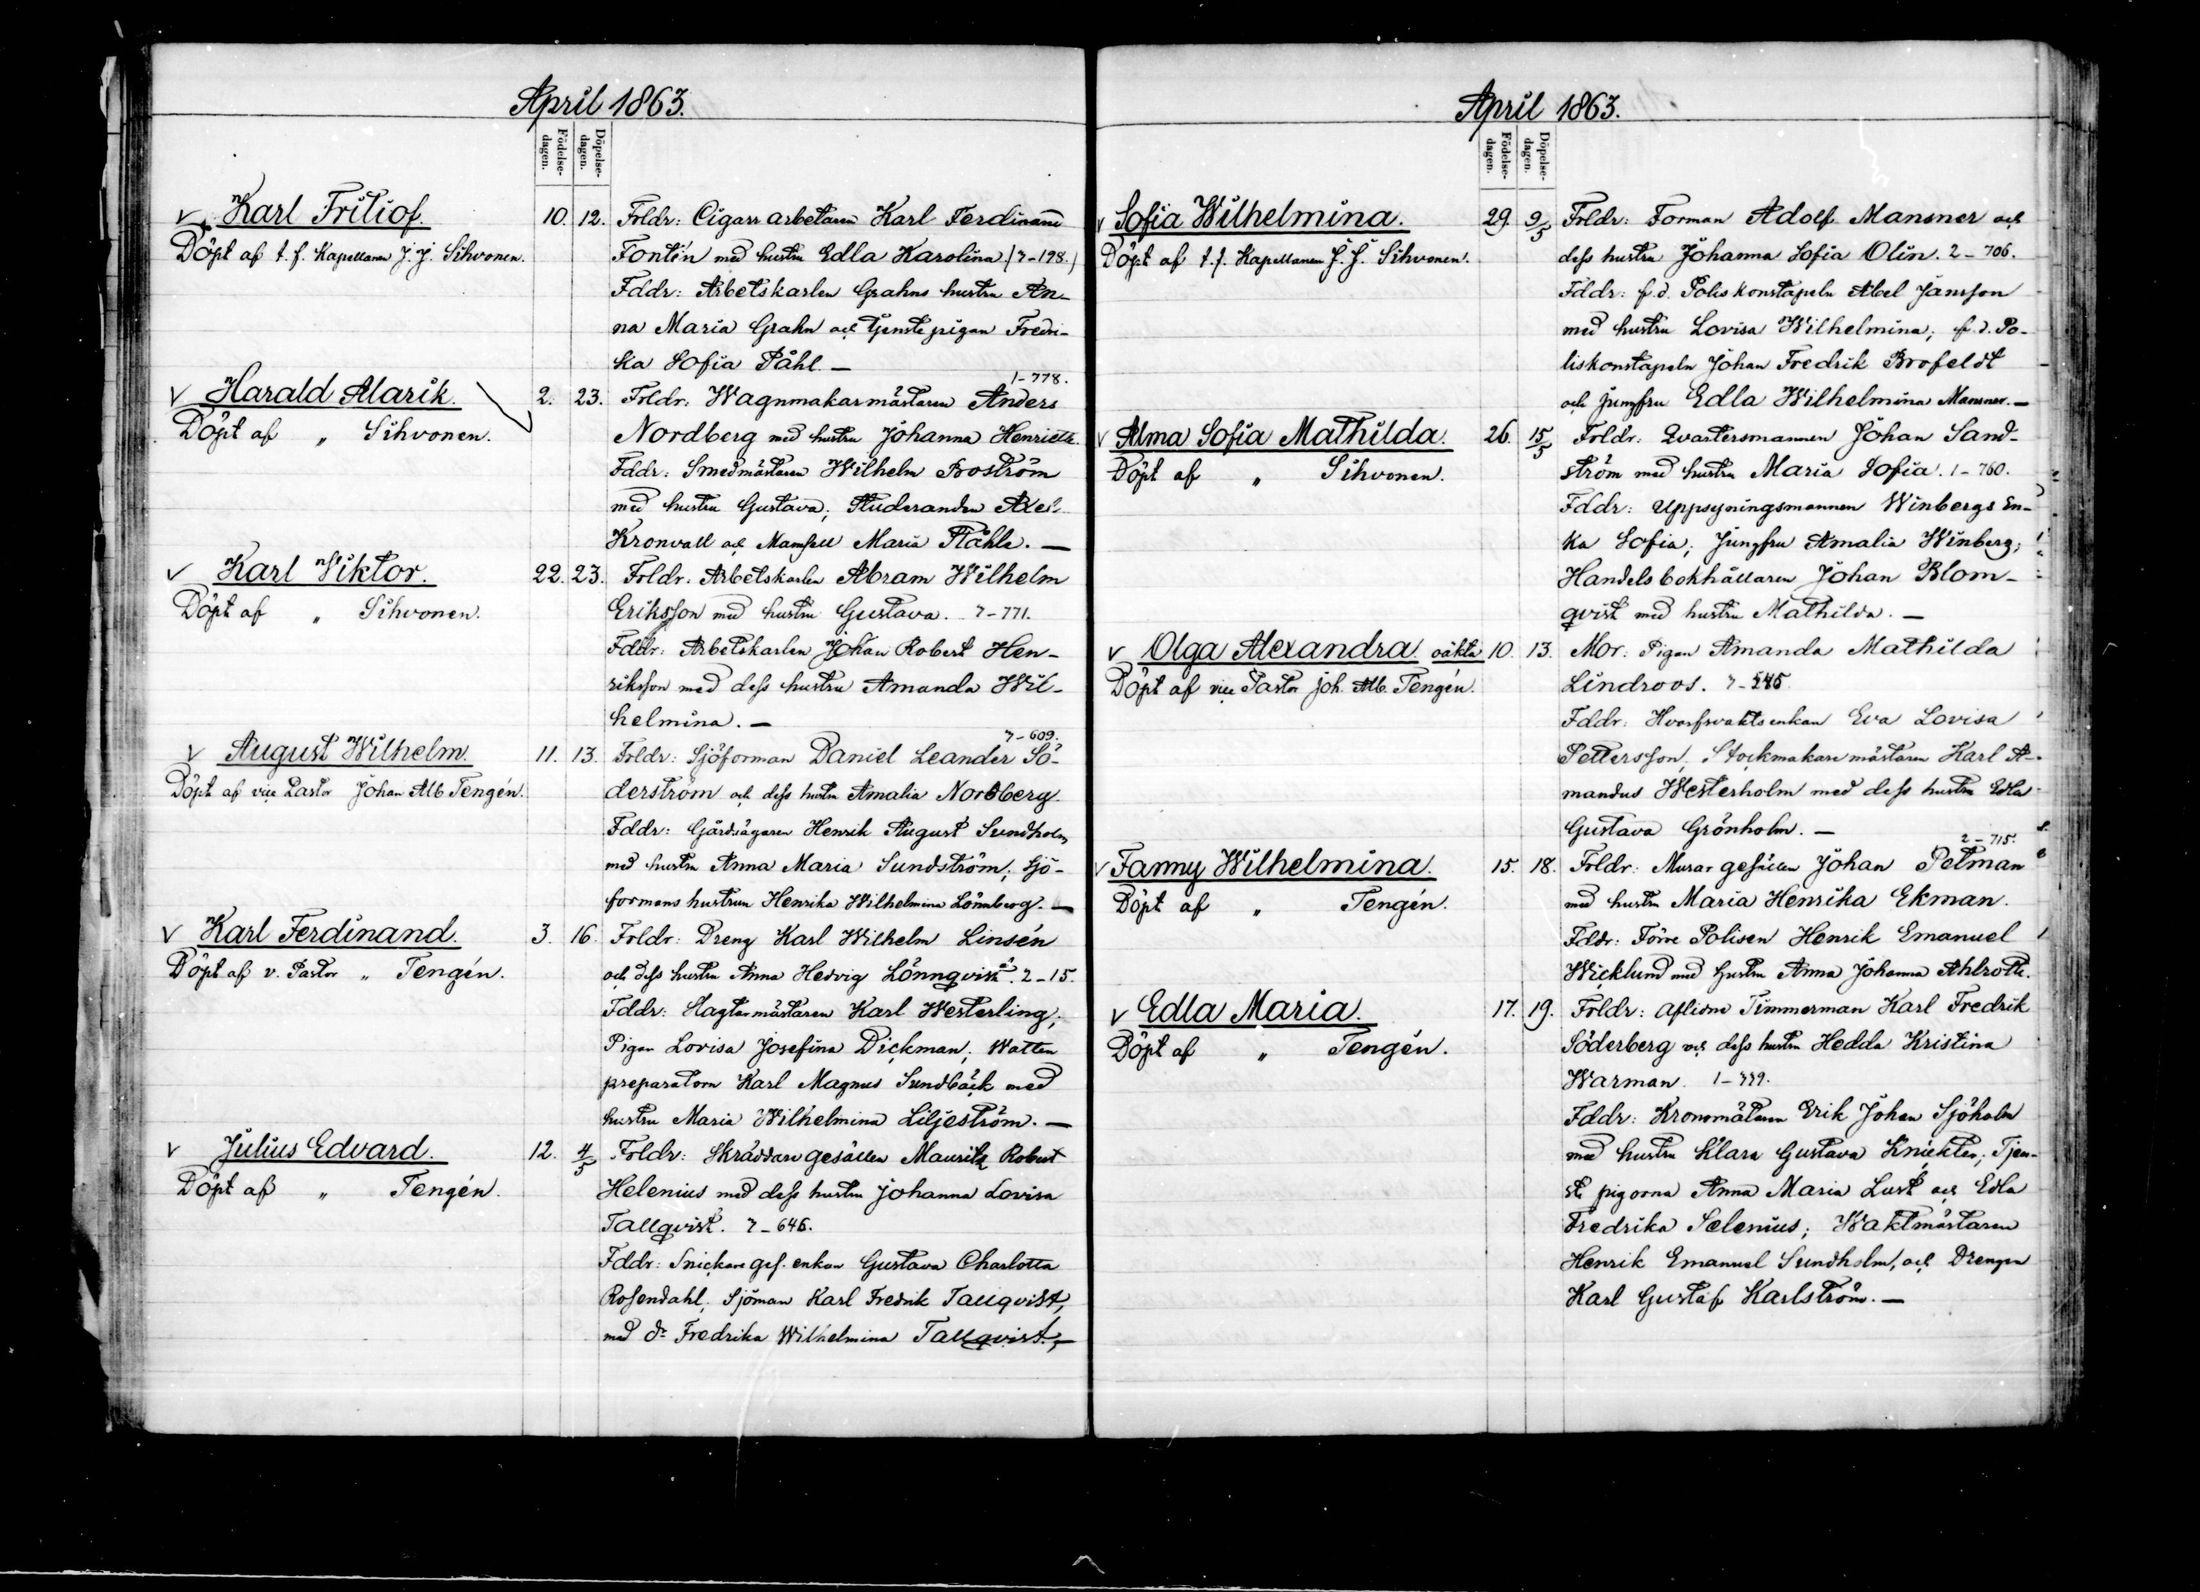 April 1863.
Födelse-
dagen.
Döpelse-
dagen.
Karl Fritiof.
Döpt af t. f. Kapellanen J. J. Sihvonen.
10. 12. Frldr: Cigarr arbetaren Karl Ferdinand
Fontén med hustru Edla Karolina (7-198.)
Fddr: Arbetskarlen Grahns hustru An-
na Maria Grahn och tjenstepigan Fredri-
ka Sofia Påhl. —
Harald Alarik.
Döpt af „ Sihvonen.
1-778.
2. 23. Frldr: Wagnmakarmästaren Anders
Nordberg med hustru Johanna Henriette.
Fddr: Smedmästaren Wilhelm Boström
med hustru Gustava; Studeranden Axel
Kronvall och Mamsell Maria Ståhle. —
Karl Viktor.
Döpt af „ Sihvonen.
22. 23. Frldr. Arbetskarlen Abram Wilhelm
Eriksson med hustru Gustava. 7-771.
Fddr: Arbetskarlen Johan Robert Hen-
riksson med dess hustru Amanda Wil-
helmina. —
August Wilhelm.
Döpt af vice Pastor Johan Alb Tengén.
7-609.
11. 13. Frldr: Sjöforman Daniel Leander Sö-
derström och dess hustru Amalia Nordberg.
Fddr: Gårdsägaren Henrik August Sundholm
med hustru Anna Maria Sundström; Sjö-
formans hustrun Henrika Wilhelmina Lönnberg. —
Karl Ferdinand.
Döpt af v. Pastor „ Tengén.
3. 16. Frldr: Dreng Karl Wilhelm Linsén
och dess hustru Anna Hedvig Lönnqvist. 2-15.
Fddr: Slagtarmästaren Karl Westerling;
Pigan Lovisa Josefina Dickman; Watten
preparatorn Karl Magnus Sundbäck med
hustru Maria Wilhelmina Liljeström. —
Julius Edvard.
Döpt af „ Tengén.
12. 4/5 Frldr: Skräddare gesällen Mauritz Robert
Helenius med dess hustru Johanna Lovisa
Tallqvist. 7-646.
Fddr: Snickare ges. enkan Gustava Charlotta
Rosendahl; Sjöman Karl Fredrik Tallqvist,
med d:o Fredrika Wilhelmina Tallqvist. —
April 1863.
Födelse-
dagen.
Döpelse-
dagen.
Sofia Wilhelmina.
Döpt af t. f. Kapellanen J. J. Sihvonen.
29. 9/5 Frldr: Forman Adolf Mansner och
dess hustru Johanna Sofia Olin. 2-706.
Fddr: f. d. Poliskonstapeln Abel Jansson
med hustru Lovisa Wilhelmina; f. d. Po-
liskonstapeln Johan Fredrik Brofeldt
och jungfru Edla Wilhelmina Mansner. —
Alma Sofia Mathilda.
Döpt af „ Sihvonen.
26. 15/5 Frldr: Qvartersmannen Johan Sand-
ström med hustru Maria Sofia. 1-760.
Fddr: Uppsyningsmannen Winbergs En-
ka Sofia; Jungfru Amalia Winberg;
Handels bokhållaren Johan Blom-
qvist med hustru Mathilda. —
Olga Alexandra oäkta
Döpt af vice Pastor Joh. Alb. Tengén.
10. 13. Mor: Pigan Amanda Mathilda
Lindroos. 7-545.
Fddr: Hvarfsvaktsenkan Eva Lovisa
Pettersson; Stockmakaremästaren Karl A-
mandus Westerholm med dess hustru Edla
Gustava Grönholm. —
Fanny Wilhelmina.
Döpt af „ Tengén.
2-715.
15. 18. Frldr: Murar gesällen Johan Petman
med hustru Maria Henrika Ekman.
Fddr: Förre Polisen Henrik Emanuel
Wicklund med hustru Anna Johanna Ahlroth.
Edla Maria.
Döpt af „ Tengén.
17. 19. Frldr: Aflidne Timmerman Karl Fredrik
Söderberg och dess hustru Hedda Kristina
Warman. 1-779.
Fddr: Kronomätaren Erik Johan Sjöholm
med hustru Klara Gustava Knickter; Tjen-
ste pigorna Anna Maria Lust och Edla
Fredrika Selenius; Waktmästaren
Henrik Emanuel Sundholm, och Drengen
Karl Gustaf Karlström. —